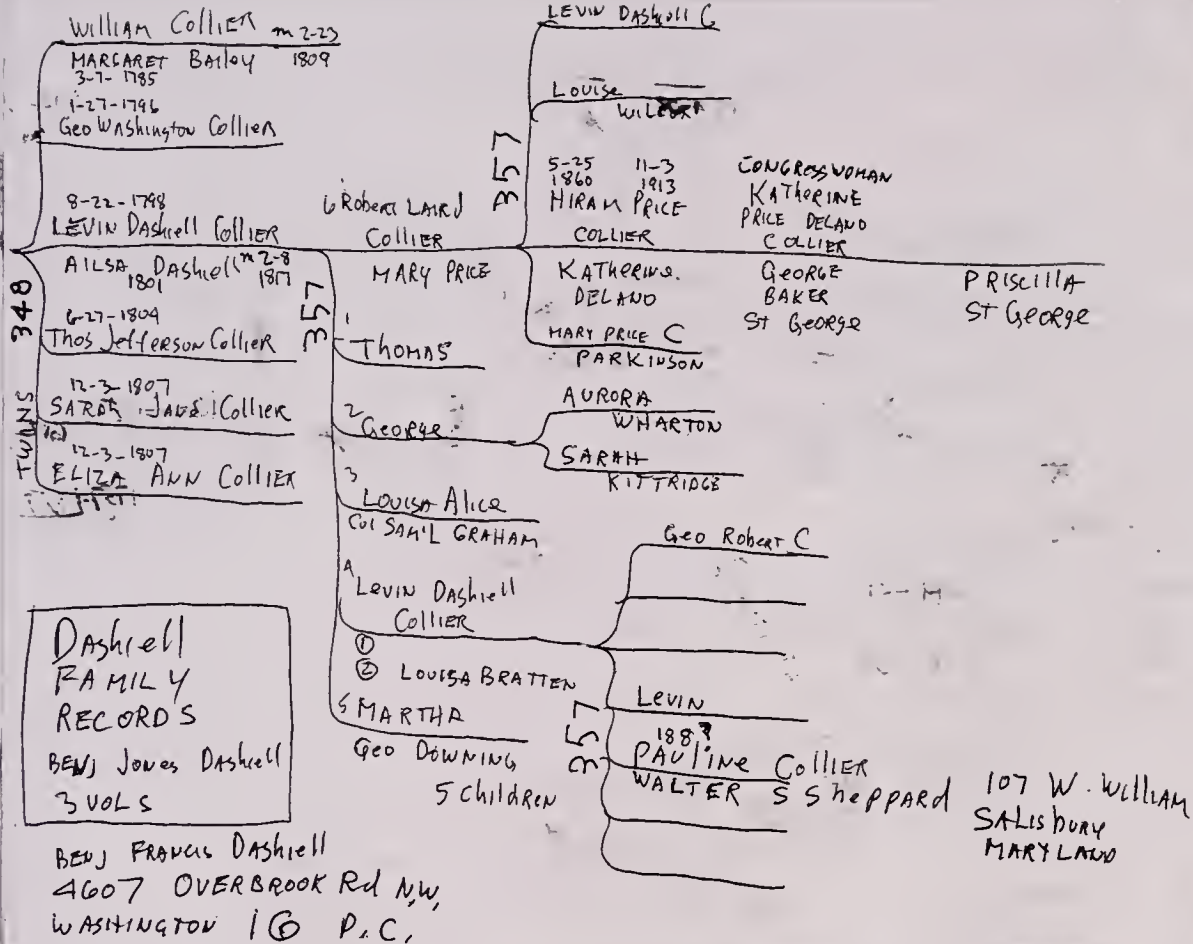 WILLIAM COLLIER m 2-23
MARGARET BAILEY 1809
3-7-1785
1-27-1796
Geo WAShington Collier
8-22-1798
LEVIN DAShiell Collier
AILSA DAShiell m 2-8
1801 1817
6-27-1804
Thos JeffeRSON Collier
12-3-1807
SARAH Collier
12-3-1807
ELIZA ANN COLLIER
348
TWINS
6 RobeRt LAIRd
COLLIER
MARY PRICE
357
1
THOMAS
2
GeoRge
3
LOUISA Alice
Col SAM'L GRAHAM
4
LeVIN DAShiell
COLLIER
①
② LOUISA BRATTEN
5 MARTHA
Geo DOWNING
5 ChildREN
LEVIN DAShiell C
LOUISe
357
5-25 11-3
1860 1913
HIRAM PRICE
COLLIER
KATHeRINe
DELANO
MARY PRICE C
PARKINSON
CONGRESSWOMAN
KATheRINE
PRICE DELANO
COLLIER
GeoRGE
BAKER
St GeoRge
PRISCILLA
ST GeoRge
AURORA
WHARTON
SARAH
KITTRIDGE
Geo RobeRt C
LeVIN
357
188?
PAUlINe COLLIER
WALTER S ShePPARd
107 W. WILLIAM
SALISbURY
MARYLAND
DAShiell
FAMILY
RECORDS
BENJ JoNes DAShiell
3 VOLS
BENJ FRANCIS DAShiell
4607 OVERBROOK Rd N,W,
WASHINGTON 16 D.C,